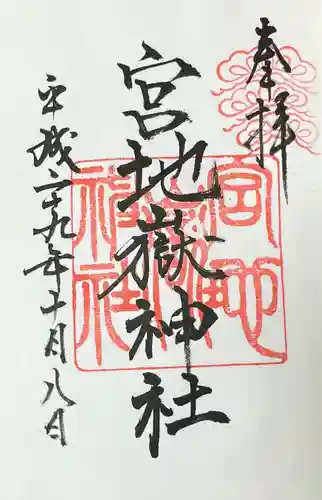 奉拝
宮地嶽神社
平成二十九年十月八日
宮地
嶽神社